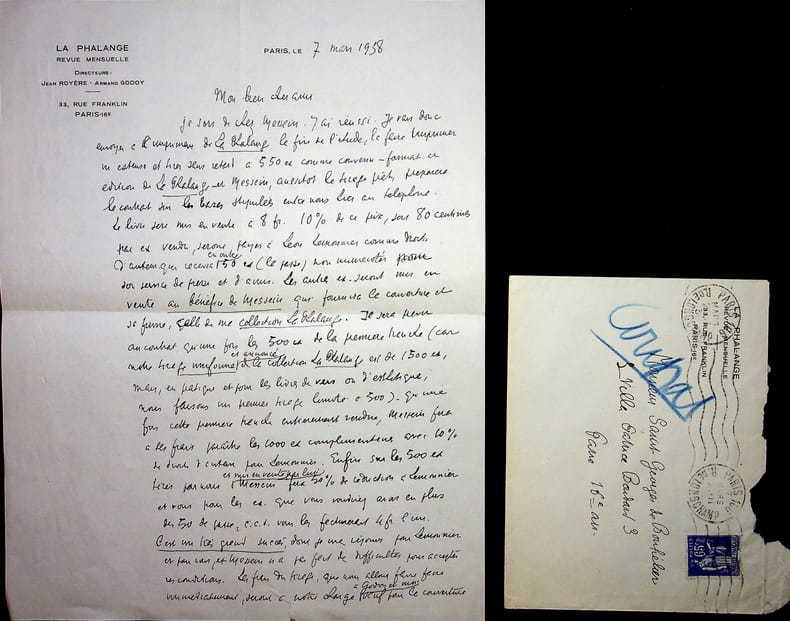 LA PHALANGE
REVUE MENSUELLE
DIRECTEURS:
JEAN ROYÈRE - ARMAND GODOY
33, RUE FRANKLIN
PARIS-16e
PARIS, LE 7 mars 1938
Mon bien cher ami
je sors de chez Messein. J'ai réussi. Je vais donc
envoyer à l'imprimeur de La Phalange la fin de l'étude, la faire imprimer
in extenso et tirer sans retard à 550 ex comme convenu - format et
édition de La Phalange - et Messein, aussitôt le tirage prêt, préparera
le contrat sur les bases stipulées entre nous hier au téléphone.
Le livre sera mis en vente à 8 fr. 10% de ce prix, soit 80 centimes
par ex vendu, seront payés à Léon Lemonnier comme droits
d'auteur qui recevra en outre 50 ex (la passe) non numérotés pour
son service de presse et d'amis. Les autres ex. seront mis en
vente au bénéfice de Messein qui fournira la couverture et
sa firme, celle de ma collection La Phalange. Je serai
au contrat qu'une fois les 500 ex de la première tranche (car
notre tirage uniforme et annoncé de la collection La Phalange est de 1500 ex,
mais, en pratique et pour les livres de vers ou d'esthétique,
nous faisons un premier tirage limité à 500). Qu'une
fois cette première tranche entièrement vendue, Messein fera
à ses frais paraître les 1000 ex complémentaires avec 10%
de droits d'auteur pour Lemonnier. Enfin sur les 500 ex
tirés par nous et mis en vente par lui Messein fera 50% de réduction à Lemonnier
et vous pour les ex. que vous voudriez avoir en plus
des 50 de passe, c.à.d. vous les facturera 4 fr l'un.
C'est un très grand succès, dont je me réjouis pour Lemonnier
et pour vous, et Messein n'a pas fait de difficultés pour accepter
ces conditions. Les frais du tirage, que nous allons faire faire
immédiatement, seront à notre charge à Godoy et moi pour la couverture
LA PHALANGE
REVUE MENSUELLE
33, RUE FRANKLIN
PARIS-16e
Monsieur Saint-Georges de Bouhélier
3 Villa
Paris 16e arr.
PARIS
65c